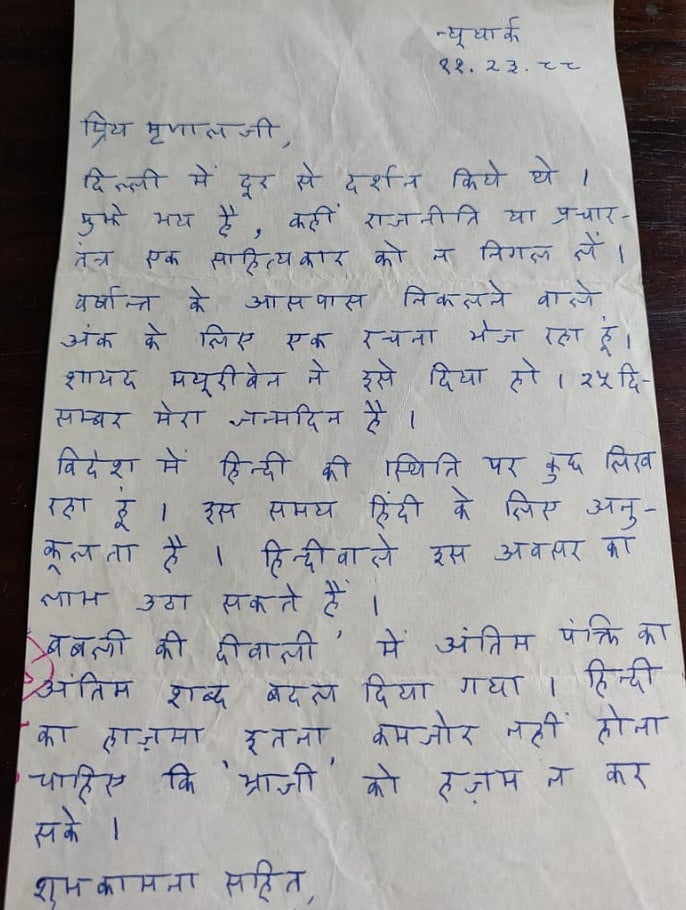 न्यूयार्क
११.२३.८८
प्रिय मृणालजी,
दिल्ली में दूर से दर्शन किये थे ।
मुझे भय है, कहीं राजनीति या प्रचार-
तंत्र एक साहित्यकार को न निगल लें ।
वर्षान्त के आसपास निकलने वाले
अंक के लिए एक रचना भेज रहा हूं ।
शायद मयूरीबेन ने इसे दिया हो । २५ दि-
सम्बर मेरा जन्मदिन है ।
विदेश में हिन्दी की स्थिति पर कुछ लिख
रहा हूं । इस समय हिंदी के लिए अनु-
कूलता है । हिन्दीवाले इस अवसर का
लाभ उठा सकते हैं ।
'बबली की दीवाली' में अंतिम पंक्ति का
अंतिम शब्द बदल दिया गया । हिन्दी
का हाज़मा इतना कमजोर नहीं होना
चाहिए कि 'भाजी' को हज़म न कर
सके ।
शुभकामना सहित,